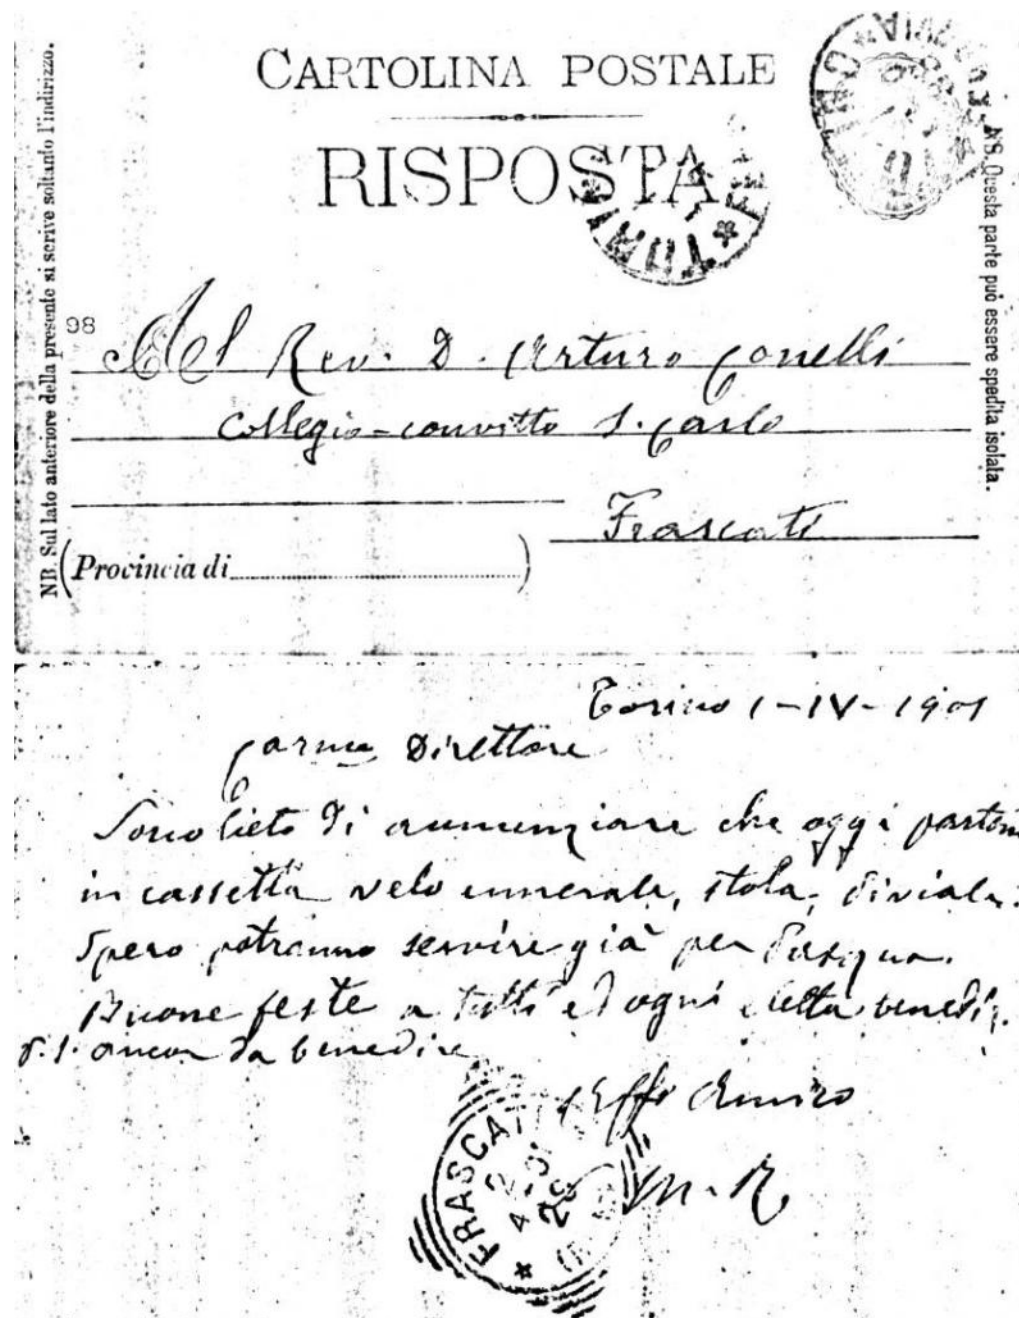 CARTOLINA POSTALE
RISPOSTA
NB. Sul lato anteriore della presente si scrive soltanto l'indirizzo.
NB. Questa parte può essere spedita isolata.
TORINO
98
Al Rev. D. Arturo Conelli
Collegio-convitto S. Carlo
Frascati
(Provincia di
)
Torino 1-IV-1901
Carmo Direttore
Sono lieto di annunziare che oggi partono
in cassetta velo umerale, stola, piviale.
Spero potranno servire già per Pasqua.
Buone feste a tutti ed ogni eletta benediz.
P.S. ancor da benedire
Aff. Amico
M. R.
FRASCATI